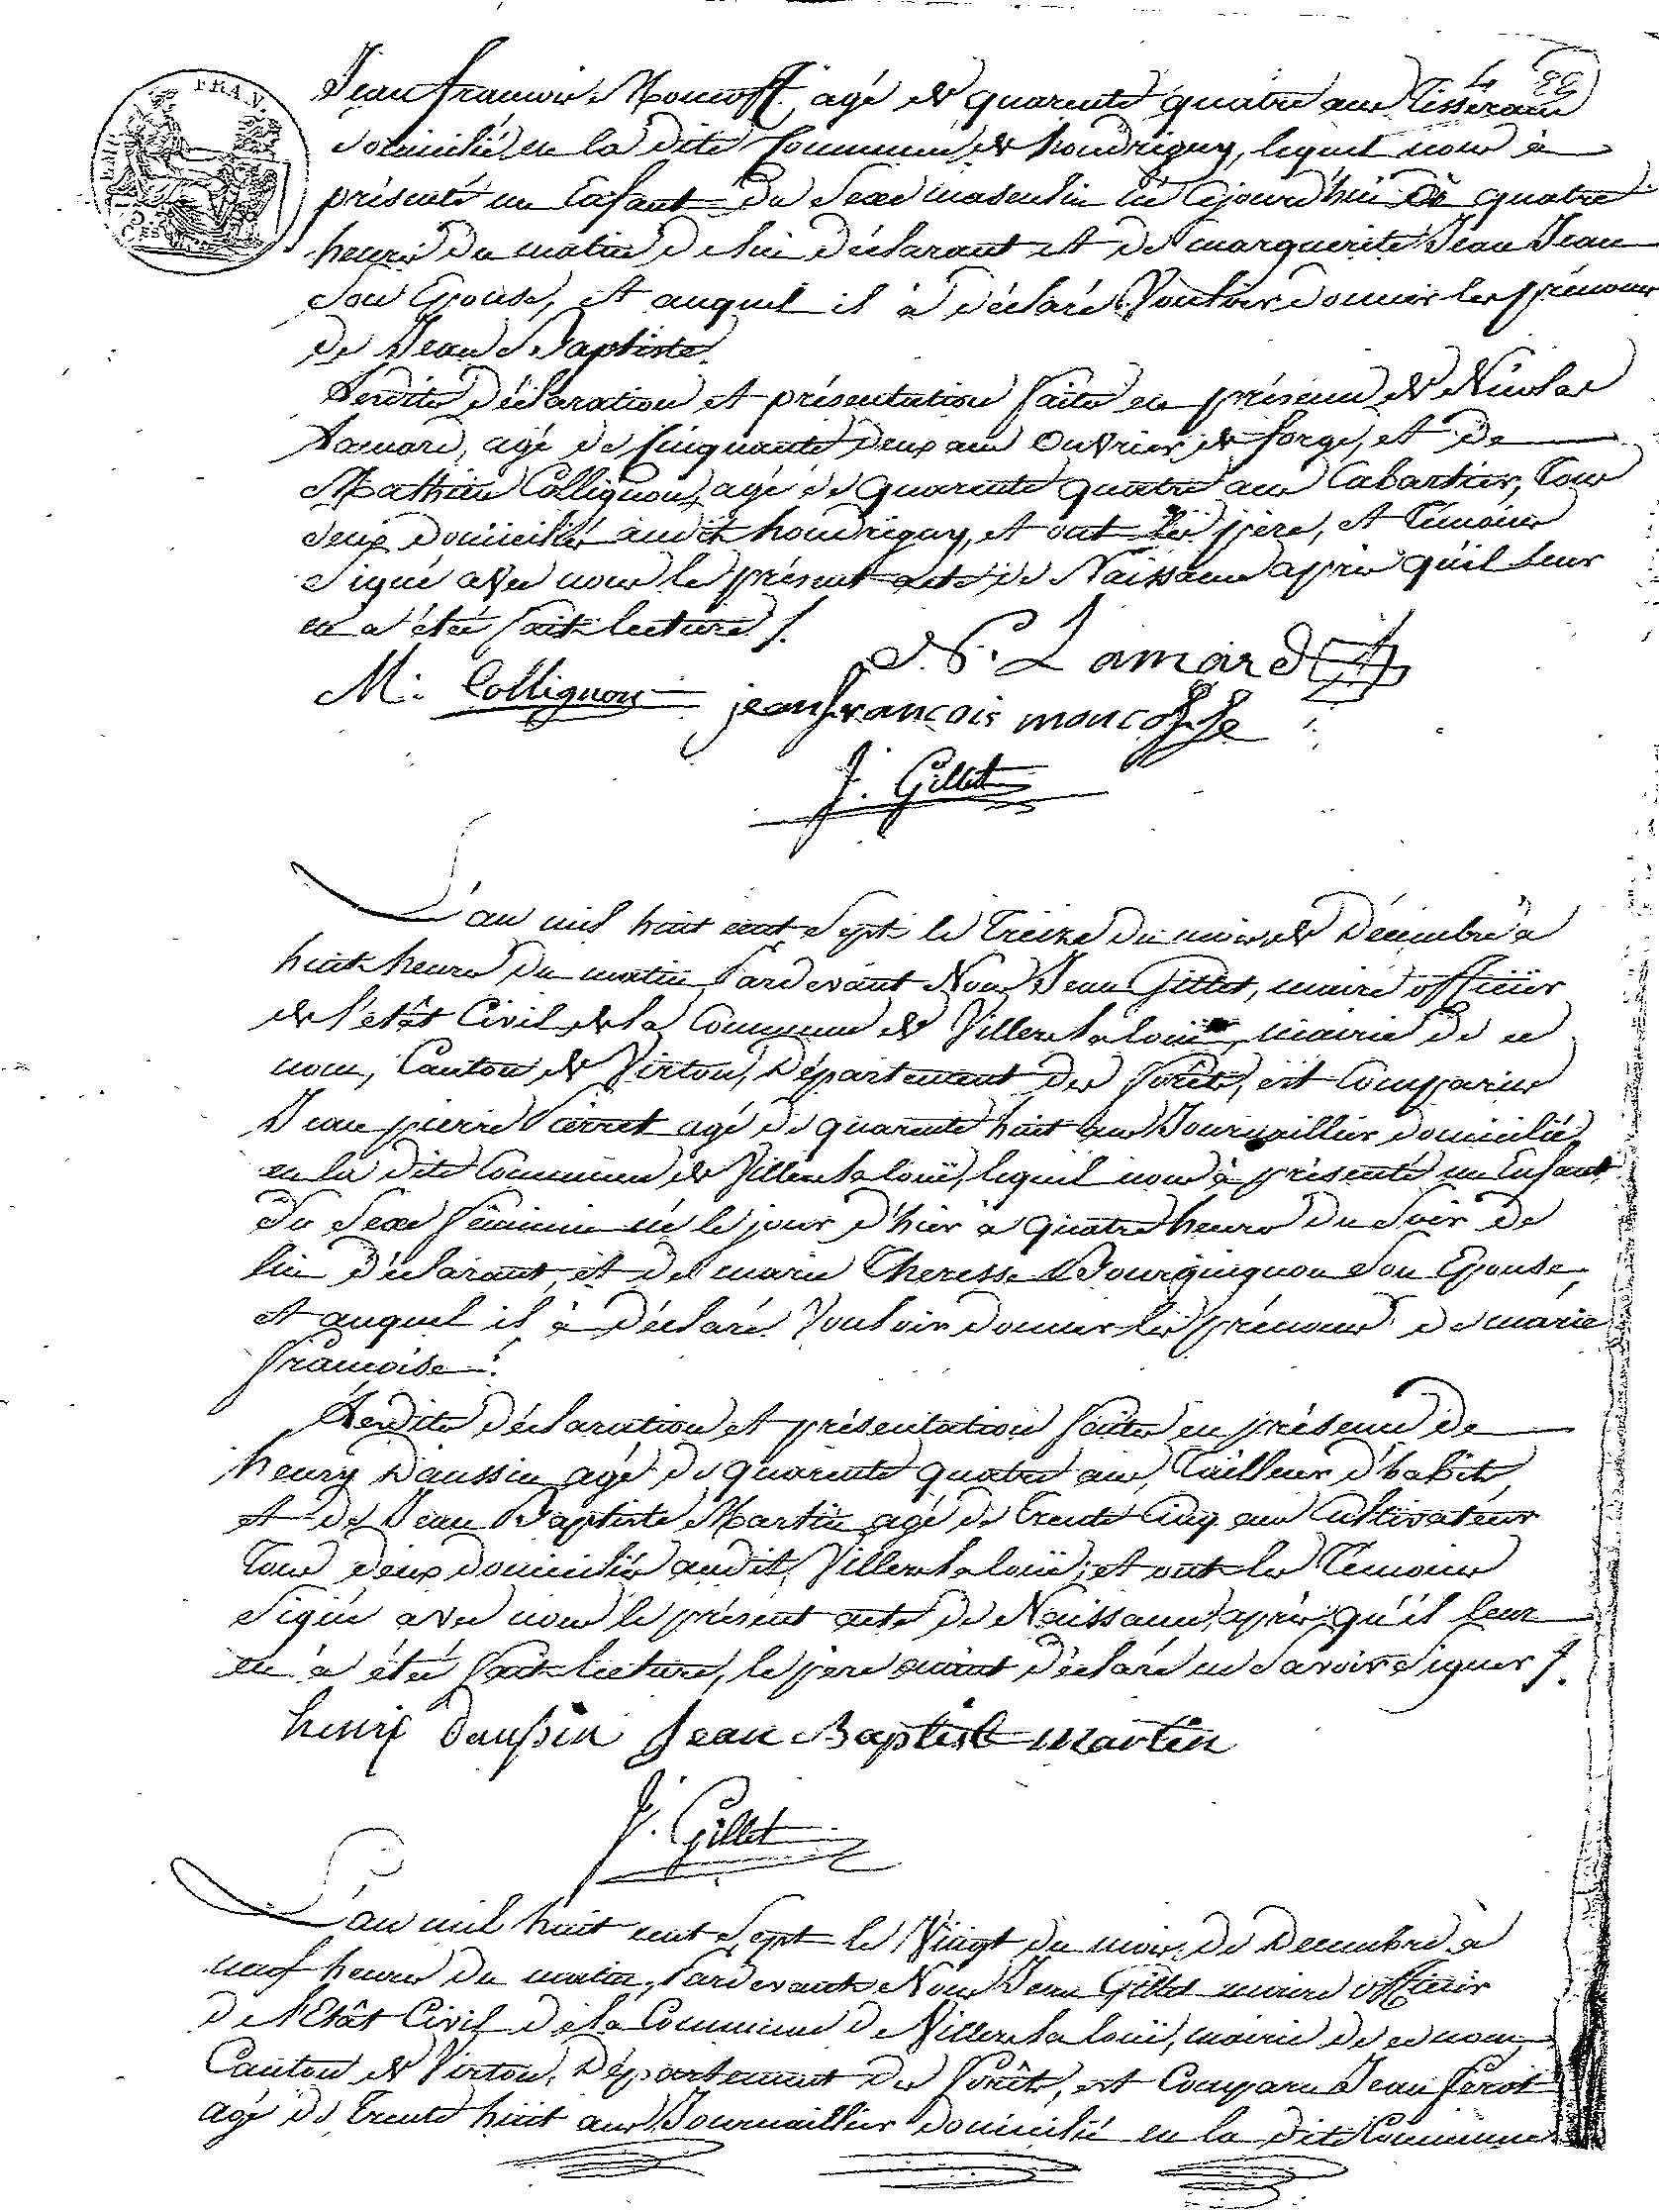 4 82
FRAN.
Jean françois Moncoff, agé de quarente quatre ans Tisserant
domicilié en la dite Commune de houdrigny, lequel nous à
présenté un Enfant du Sexe masculin né cejourd'hui à quatre
heures du matin de lui déclarant et de marguerite Jean Jean
Son Epouse, et auquel il à déclaré Vouloir donner les prénoms
de Jean Baptiste.
Lesdites Déclaration et présentation faites en présence de Nicolas
Lamard, agé de Cinquante deux ans Ouvrier de forge, et de
Mathieu Collignon, agé de quarente quatre ans Cabartier, Tous
deux domiciliés audit houdrigny, et ont les père, et Témoins
Signé avec nous le présent acte de Naissance après qu'il leur
en a été fait lecture /.
N. Lamard
M: Collignon jean françois moncoffe
J. Gillet
L'an mil huit cent Sept le Treize du mois de Décembre à
huit heures du matin Pardevant Nous Jean Gillet, maire officier
de l'etât Civil de la Commune de Villers la louë, mairie de ce
nom, Canton de Virton, Département des Forêts, est Comparus
Jean pierre Pierret agé de quarente huit ans Journaillier domicilié
en la dite Commune de Villers la louë, lequel nous à présenté un Enfant
du Sexe féminin né le jour d'hier à quatre heures du Soir de
lui déclarant et de marie Theresse Bourguignon Son Epouse
et auquel il à déclaré Vouloir donner les prénoms de marie
françoise.
Lesdites déclaration et présentation faites en présence de
henry Daussin agé de quarente quatre ans, Tailleur d'habits,
et de Jean Baptiste Martin agé de trente Cinq ans Cultivateur
Tous deux domiciliés audit Villers la louë, et ont les Témoins
Signé avec nous le présent acte de Naissance, après qu'il leur
en à été fait lecture, le père aiant déclaré ne Savoir Signer /.
henri daussin Jean Baptist martin
J. Gillet
L'an mil huit cent Sept le Vingt du mois de Decembre à
neuf heures du matin, Pardevant Nous Jean Gillet maire officier
de l'Etât Civil de la Commune de Villers la louë, mairie de ce nom,
Canton de Virton, Département des Forêts, est Comparu Jean Perot
agé de Trente huit ans Journaillier domicilié en la dite Commune